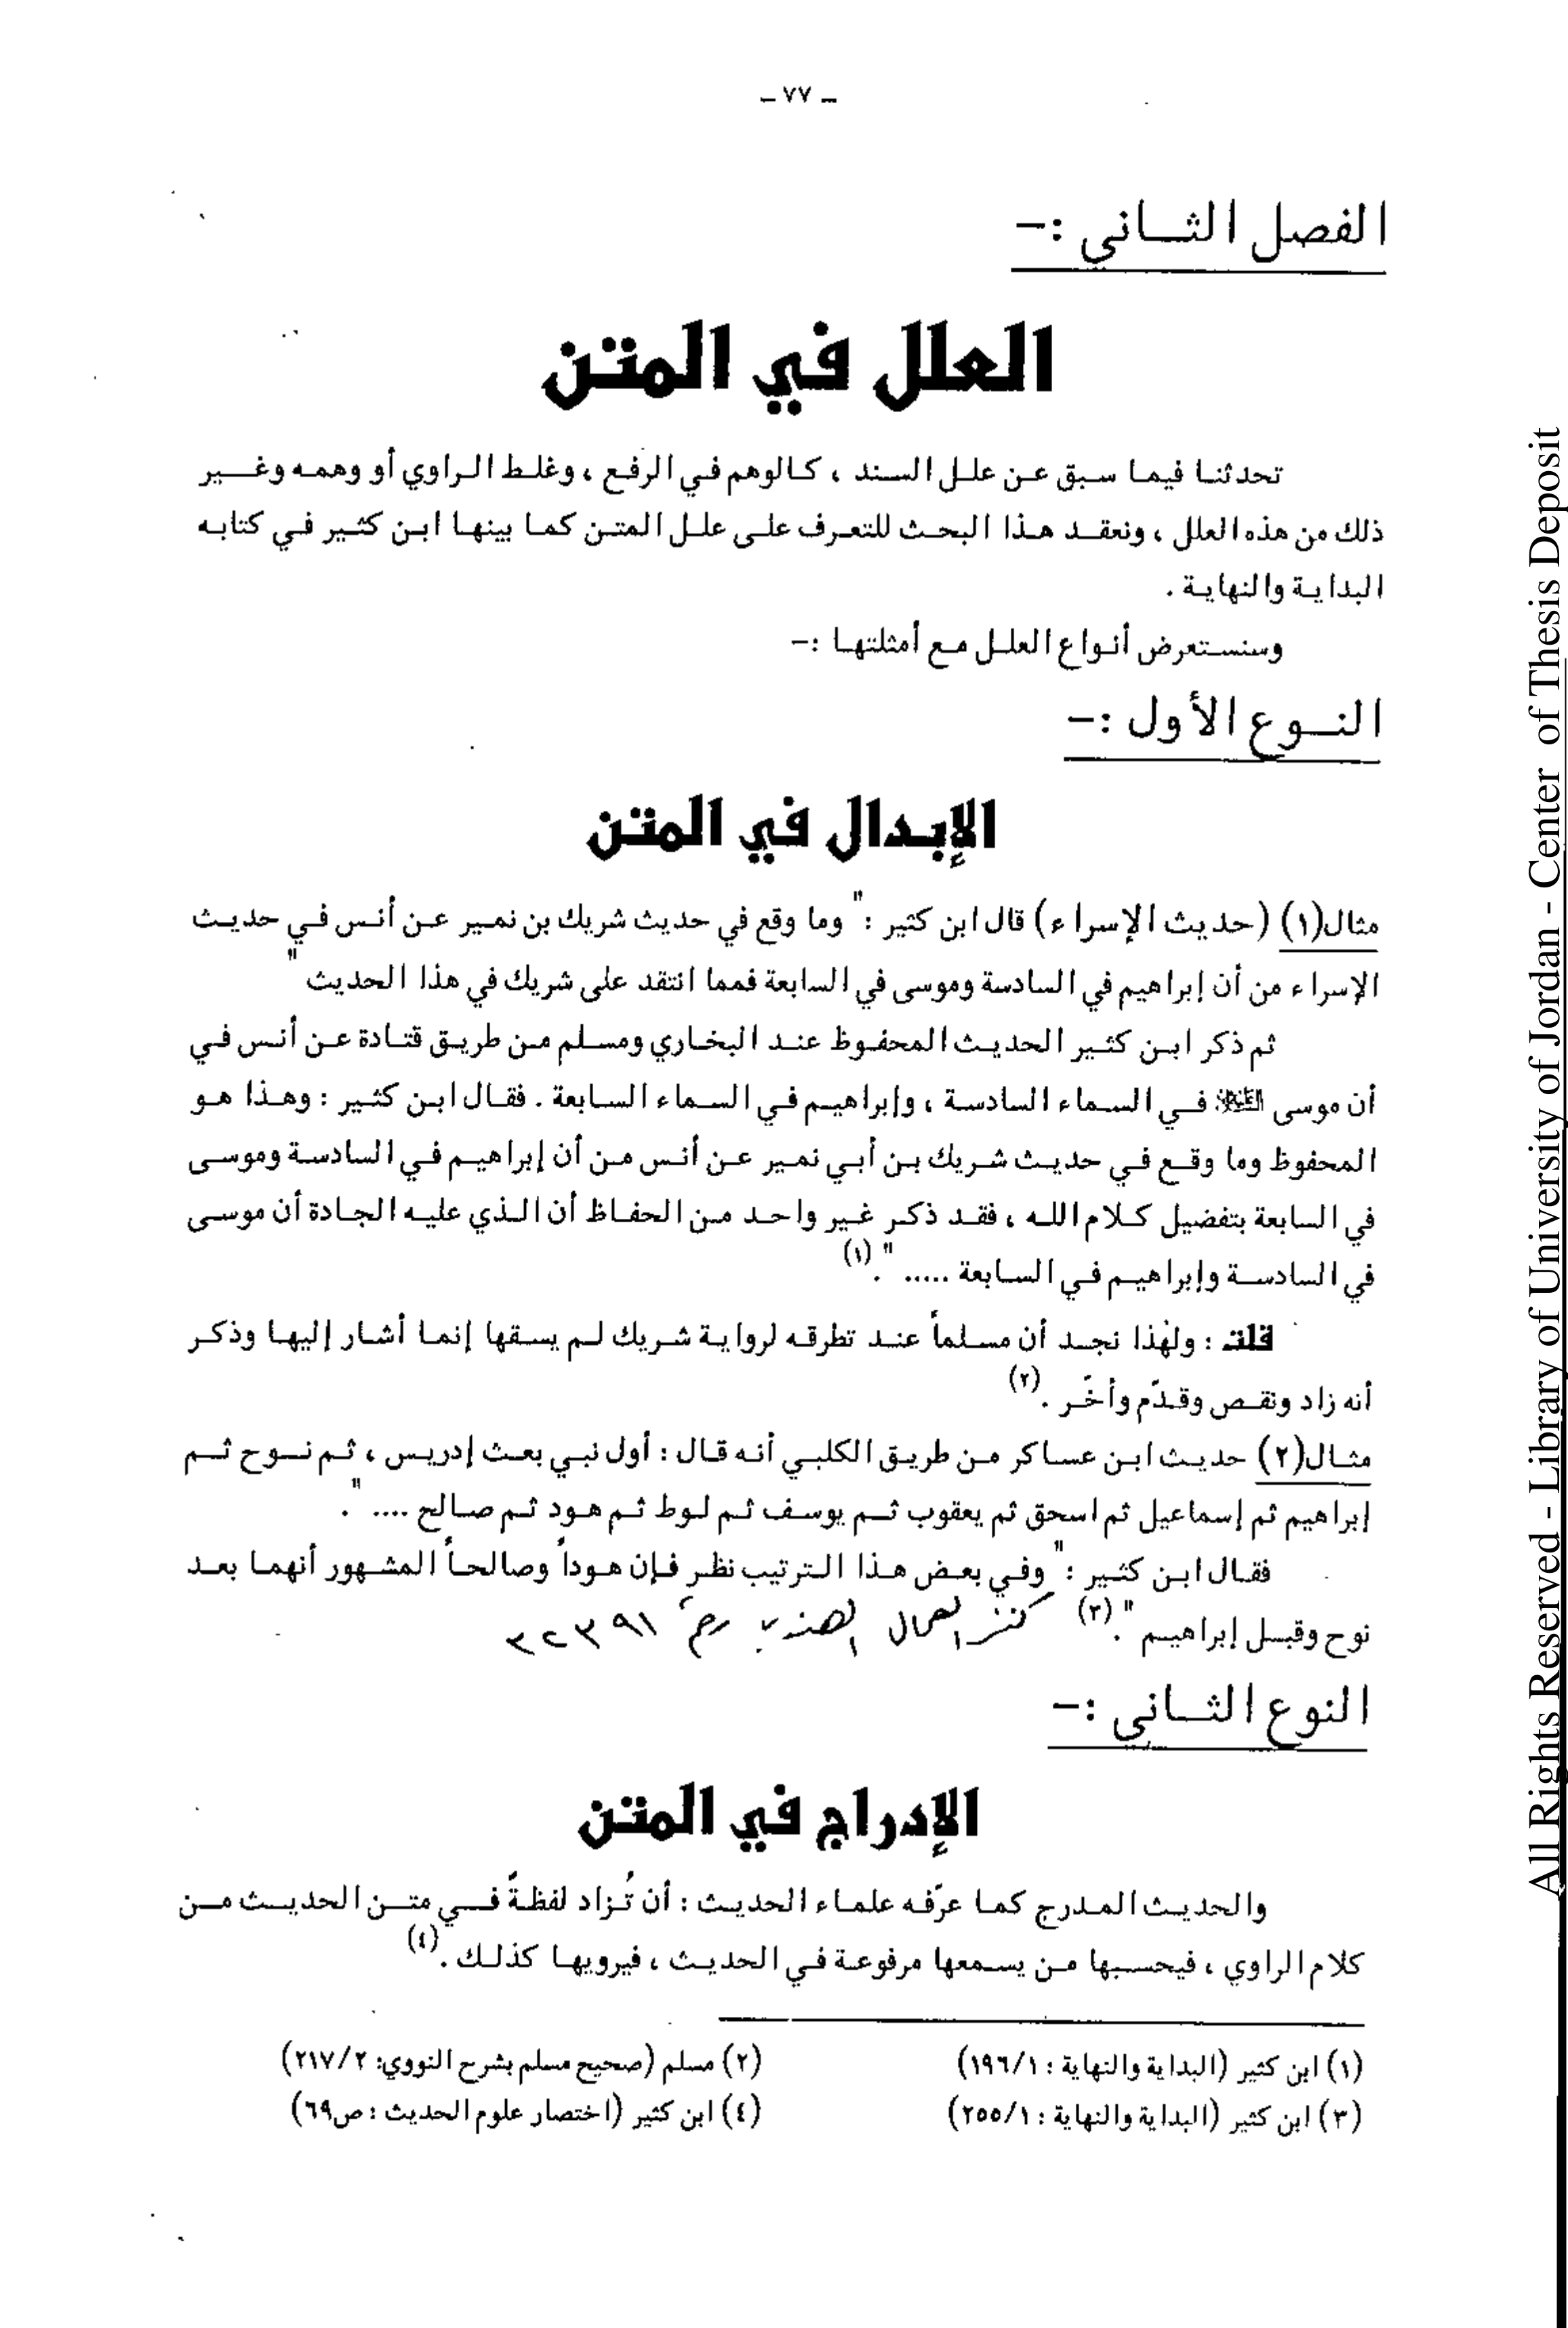 - ٧٧ -
الفصل الثاني :-
العلل في المتن
تحدثنا فيما سبق عن علل السند ، كالوهم في الرفع ، وغلط الراوي أو وهمه وغير
ذلك من هذه العلل ، ونعقد هذا البحث للتعرف على علل المتن كما بينها ابن كثير في كتابه
البداية والنهاية .
وسنستعرض أنواع العلل مع أمثلتها :-
النوع الأول :-
الإبدال في المتن
مثال(١) (حديث الإسراء) قال ابن كثير :" وما وقع في حديث شريك بن نمير عن أنس في حديث
الإسراء من أن إبراهيم في السادسة وموسى في السابعة فمما انتقد على شريك في هذا الحديث "
ثم ذكر ابن كثير الحديث المحفوظ عند البخاري ومسلم من طريق قتادة عن أنس في
أن موسى في السماء السادسة ، وإبراهيم في السماء السابعة . فقال ابن كثير : وهذا هو
المحفوظ وما وقع في حديث شريك بن أبي نمير عن أنس من أن إبراهيم في السادسة وموسى
في السابعة بتفضيل كلام الله ، فقد ذكر غير واحد من الحفاظ أن الذي عليه الجادة أن موسى
في السادسة وإبراهيم في السابعة ..... ".(١)
قلت : ولهذا نجد أن مسلماً عند تطرقه لرواية شريك لم يسقها إنما أشار إليها وذكر
أنه زاد ونقص وقدّم وأخّر .(٢)
مثال(٢) حديث ابن عساكر من طريق الكلبي أنه قال : أول نبي بعث إدريس ، ثم نوح ثم
إبراهيم ثم إسماعيل ثم اسحق ثم يعقوب ثم يوسف ثم لوط ثم هود ثم صالح .... ".
فقال ابن كثير :" وفي بعض هذا الترتيب نظر فإن هوداً وصالحاً المشهور أنهما بعد
نوح وقبل إبراهيم ".(٣) كنز العمال الهندي رقم ٣٢٣٩١
النوع الثاني :-
الإدراج في المتن
والحديث المدرج كما عرّفه علماء الحديث : أن تُزاد لفظةً في متن الحديث من
كلام الراوي ، فيحسبها من يسمعها مرفوعة في الحديث ، فيرويها كذلك .(٤)
(١) ابن كثير (البداية والنهاية : ١٩٦/١) (٢) مسلم (صحيح مسلم بشرح النووي: ٢١٧/٢)
(٣) ابن كثير (البداية والنهاية : ٢٥٥/١) (٤) ابن كثير (اختصار علوم الحديث : ص٦٩)
All Rights Reserved - Library of University of Jordan - Center of Thesis Deposit